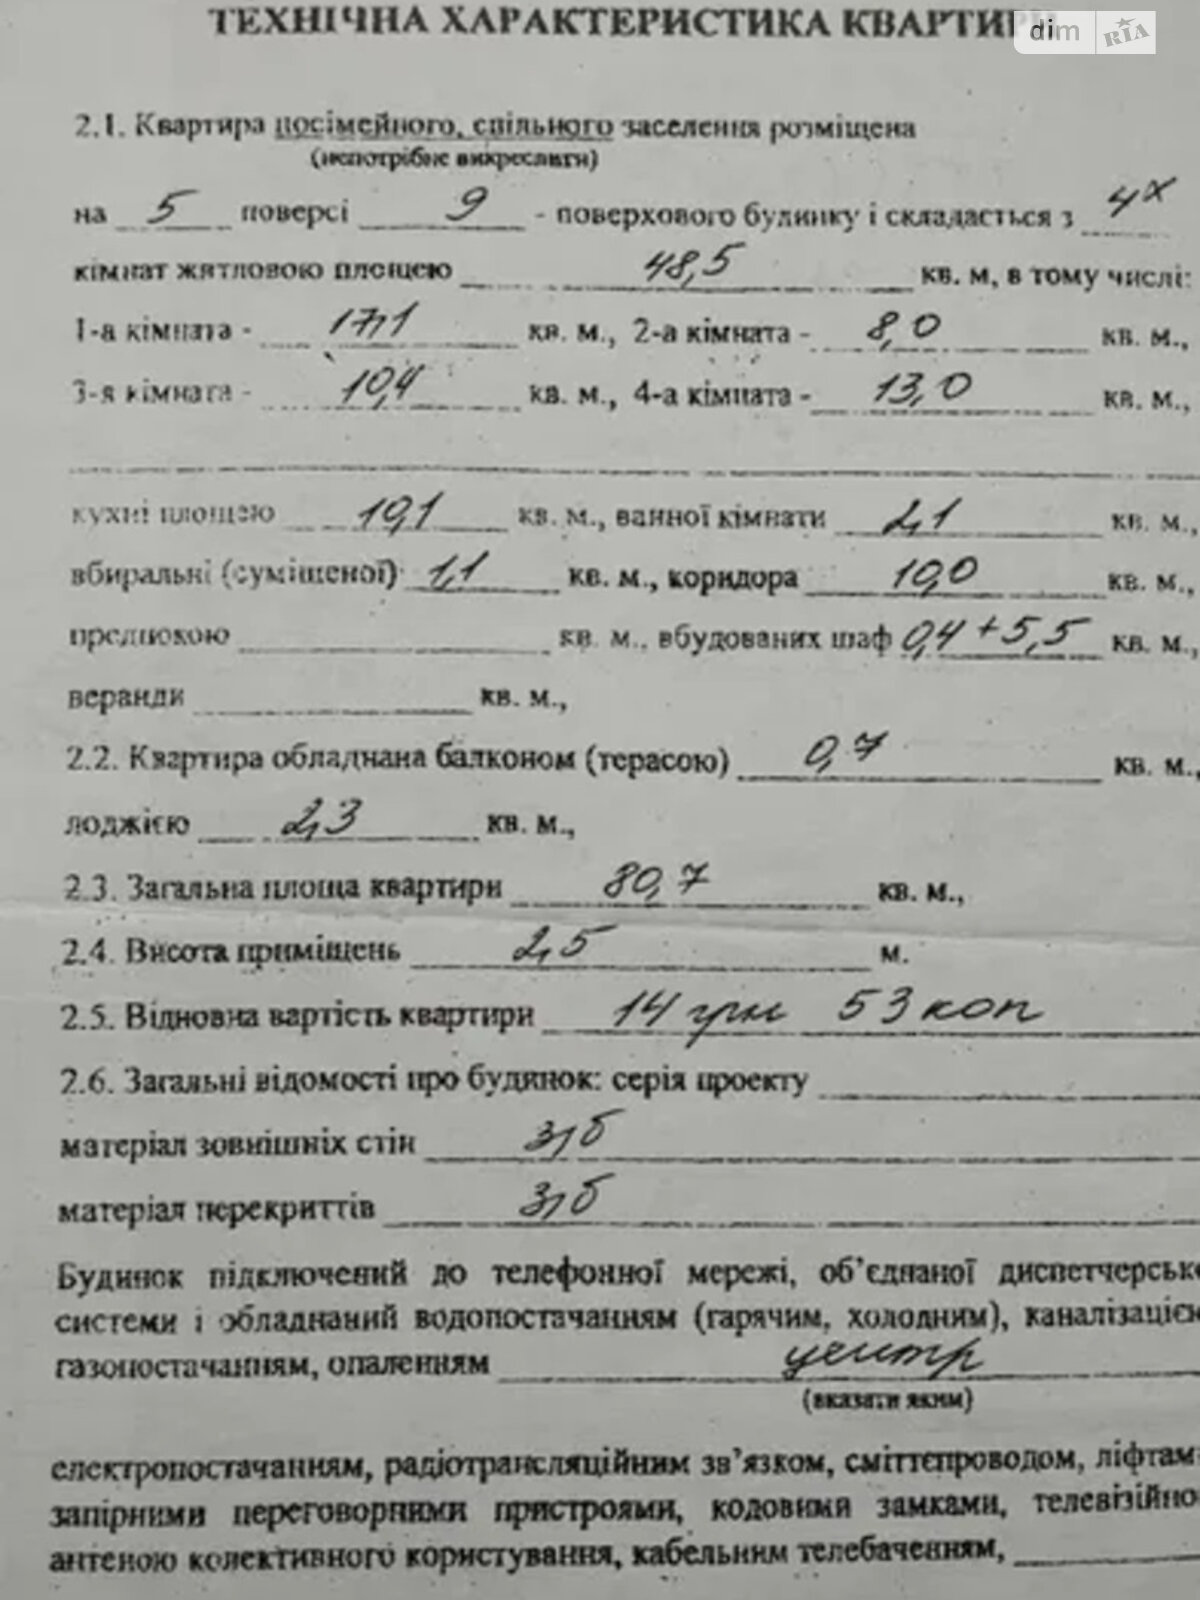 ТЕХНІЧНА ХАРАКТЕРИСТИКА КВАРТИРИ
dim RIA
2.1. Квартира посімейного, спільного заселення розміщена
(непотрібне викреслити)
на 5 поверсі 9 - поверхового будинку і складається з 4х
кімнат житловою площею 48,5 кв. м, в тому числі:
1-а кімната - 17,1 кв. м., 2-а кімната - 8,0 кв. м.,
3-я кімната - 10,4 кв. м., 4-а кімната - 13,0 кв. м.,
кухні площею 10,1 кв. м., ванної кімнати 2,1 кв. м.,
вбиральні (суміщеної) 1,1 кв. м., коридора 10,0 кв. м.,
передпокою кв. м., вбудованих шаф 0,4 + 5,5 кв. м.,
веранди кв. м.,
2.2. Квартира обладнана балконом (терасою) 0,7 кв. м.,
лоджією 2,3 кв. м.,
2.3. Загальна площа квартири 80,7 кв. м.,
2.4. Висота приміщень 2,5 м.
2.5. Відновна вартість квартири 14 грн 53 коп
2.6. Загальні відомості про будинок: серія проекту
матеріал зовнішніх стін з/б
матеріал перекриттів з/б
Будинок підключений до телефонної мережі, об’єднаної диспетчерсько
системи і обладнаний водопостачанням (гарячим, холодним), каналізацією
газопостачанням, опаленням центр
(вказати яким)
електропостачанням, радіотрансляційним зв’язком, сміттєпроводом, ліфтам
запірними переговорними пристроями, кодовими замками, телевізійно
антеною колективного користування, кабельним телебаченням,